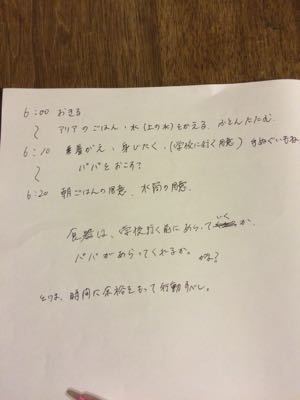 6:00 おきる
〜 アリアのごはん・水(上の水)をかえる、ふとんたたむ
6:10 着がえ、身じたく、(学校に行く用意)手ぬぐいもね
〜 パパをおこす?
6:20 朝ごはんの用意、水筒の用意、
食器は、学校行く前にあらっていくか、
パパがあらってくれるか。かな?
とりま、時間に余裕をもって行動すべし。